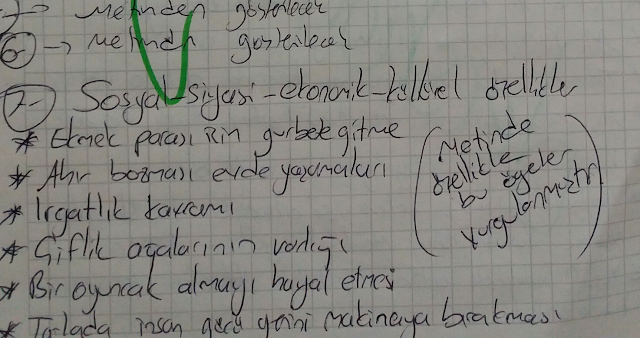 5-) → Metinden gösterilecek
6-) → Metinden gösterilecek
7- Sosyal-siyasi-ekonomik-kültürel özellikler
* Ekmek parası için gurbete gitme
* Ahır bozması evde yaşamaları
* Irgatlık kavramı
* Çiftlik ağalarının varlığı
* Bir oyuncak almayı hayal etmesi
* Tarlada insan gücü yerini makinaya bırakması
(Metinde
özellikle
bu ögeler
vurgulanmıştır)